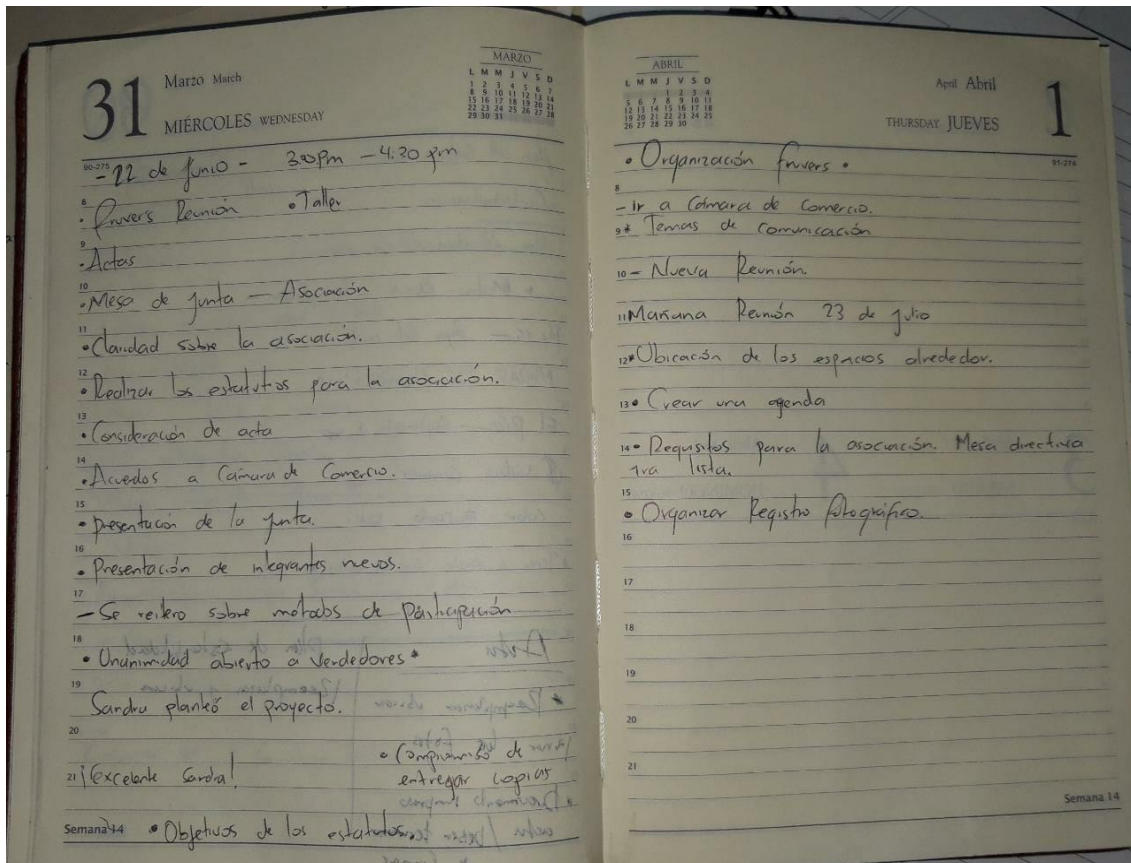 31 Marzo March
MIÉRCOLES WEDNESDAY
MARZO
L M M J V S D
1 2 3 4 5 6 7
8 9 10 11 12 13 14
15 16 17 18 19 20 21
22 23 24 25 26 27 28
29 30 31
90-275
- 22 de Junio - 3:00 pm - 4:20 pm
8
• Fruvers Reunión • Taller
9
• Actas
10
• Mesa de junta - Asociación
11
• Claridad sobre la asociación.
12
• Realizar los estatutos para la asociación.
13
• Consideración de acta
14
• Acuerdos a Cámara de Comercio.
15
• presentación de la junta.
16
• Presentación de integrantes nuevos.
17
- Se reitero sobre métodos de Participación
18
• Unanimidad abierto a verdedores *
19
Sandra planteó el proyecto.
20
• Compromiso de
21 ¡Excelente Sandra! entregar copias
Semana 14 • Objetivos de los estatutos.
ABRIL
L M M J V S D
1 2 3 4
5 6 7 8 9 10 11
12 13 14 15 16 17 18
19 20 21 22 23 24 25
26 27 28 29 30
April Abril 1
THURSDAY JUEVES
91-274
• Organización fruvers •
8
- Ir a Cámara de Comercio.
9 * Temas de comunicación
10 - Nueva Reunión.
11 Mañana Reunión 23 de julio
12 * Ubicación de los espacios alrededor.
13 • Crear una agenda
14 • Requisitos para la asociación. Mesa directiva
1ra lista.
15
• Organizar Registro fotográfico.
16
17
18
19
20
21
Semana 14